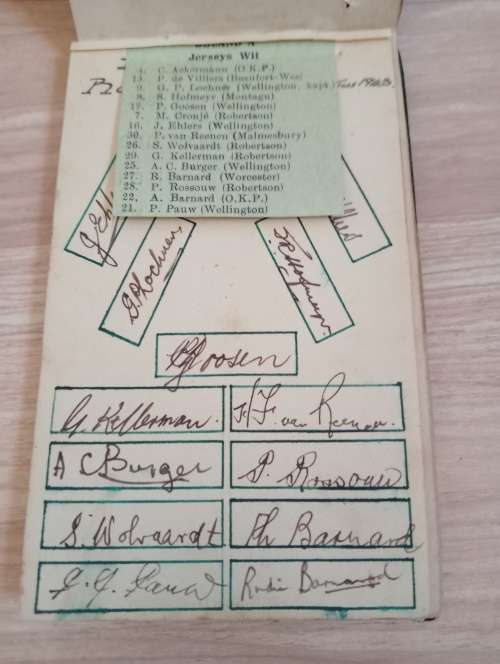 BOLAND A
Jerseys Wit
14. C. Ackermann (O.K.P.)
15. P. de Villiers (Beaufort-Wes)
9. G. P. Lochner (Wellington, kapt.)
8. S. Hofmeyr (Montagu)
17. P. Goosen (Wellington)
7. M. Cronjé (Robertson)
16. J. Ehlers (Wellington)
30. P. van Reenen (Malmesbury)
26. S. Wolvaardt (Robertson)
29. G. Kellerman (Robertson)
25. A. C. Burger (Wellington)
27. R. Barnard (Worcester)
28. P. Rossouw (Robertson)
22. A. Barnard (O.K.P.)
21. P. Pauw (Wellington)
J Ehl
G P Lochner
Goosen
G. Kellerman. van Reenen.
A C Burger P. Rossouw
S. Wolvaardt Barnard
Pauw Barnard